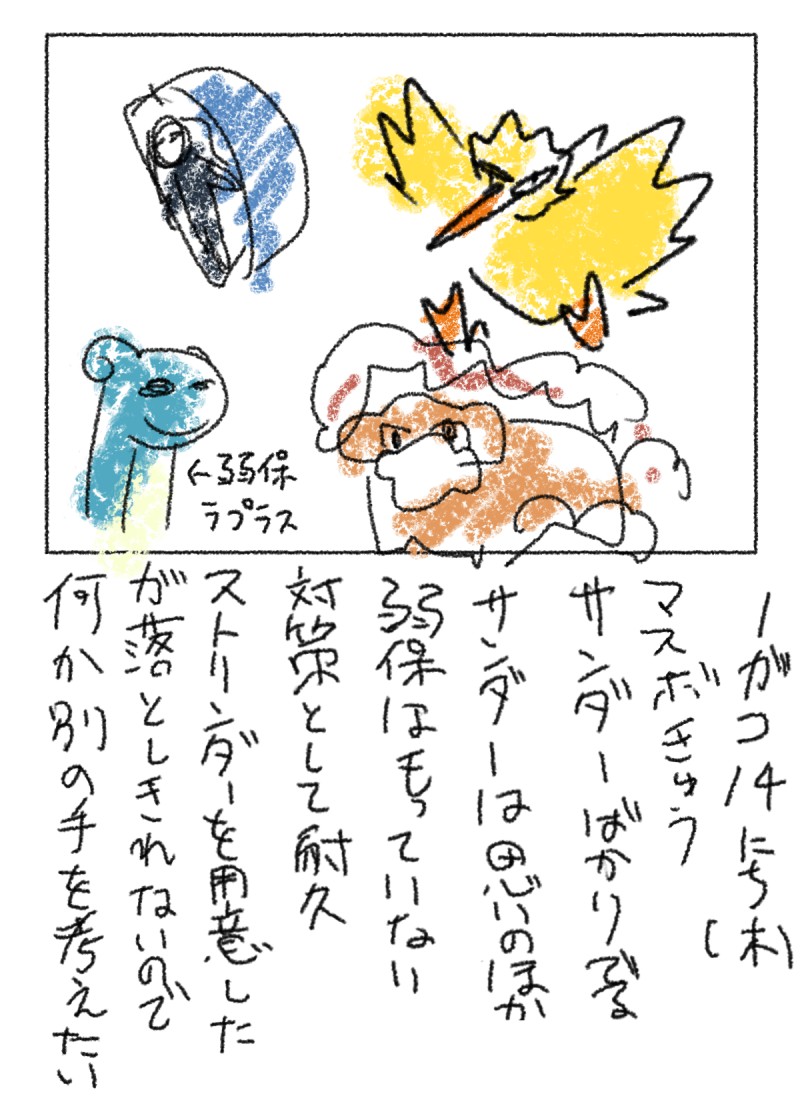 1がつ14にち(木)
マスボきゅう
サンダーばかりでる
サンダーは思いのほか
弱保はもっていない
対策として耐久
ストリンダーを用意した
が落としきれないので
何か別の手を考えたい
←弱保
ラプラス